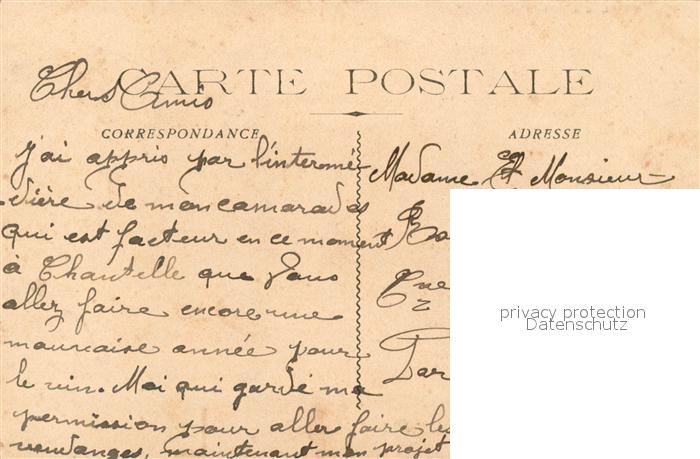 CARTE POSTALE
Chers Amis
CORRESPONDANCE
J'ai appris par l'intermé
dière de mon camarades
qui est facteur en ce moment
à Chantelle que Vous
allez faire encore une
mauvaise année pour
le vin. Moi qui gardé ma
permission pour aller faire les
vendanges, maintenant mon projet
ADRESSE
Madame Et Monsieur
Par
privacy protection
Datenschutz